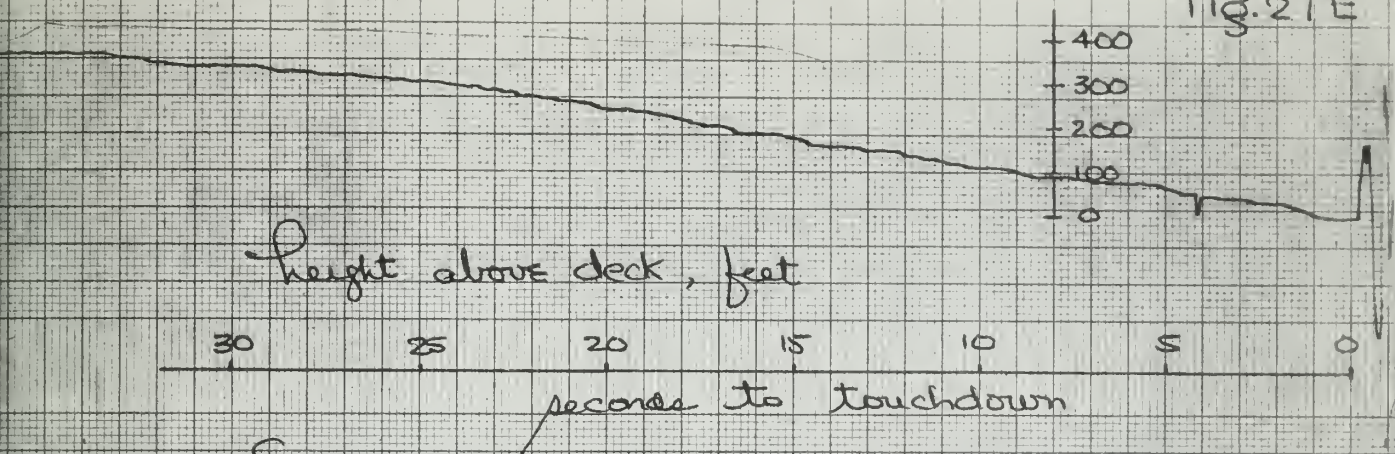 Fig. 21E
400
300
200
100
0
height above deck, feet
30 25 20 15 10 5 0
seconds to touchdown